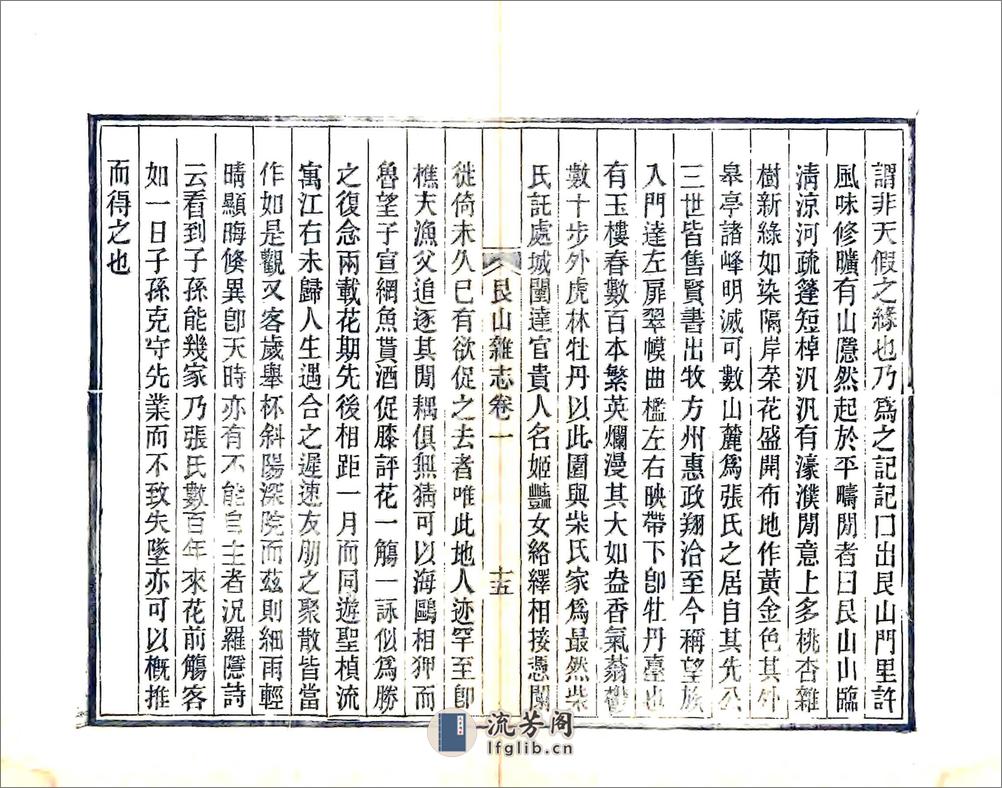 謂非天假之緣也乃爲之記記曰出艮山門里許
風味修曠有山隱然起於平疇閒者曰艮山山臨
淸涼河疏篷短棹汎汎有濠濮閒意上多桃杏雜
樹新綠如染隔岸菜花盛開布地作黃金色其外
皋亭諸峰明滅可數山麓爲張氏之居自其先公
三世皆售賢書出牧方州惠政翔洽至今稱望族
入門達左扉翠幙曲檻左右映帶下卽牡丹臺也
有玉樓春數百本繁英爛漫其大如盎香氣蓊鬱
數十步外虎林牡丹以此園與柴氏家爲最然柴
氏託處城闉達官貴人名姬豔女絡繹相接憑闌
艮山雜志卷一
十五
徙倚未久已有欲促之去者唯此地人迹罕至卽
樵夫漁父追逐其閒耦俱無猜可以海鷗相狎而
魯望子宣網魚貰酒促膝評花一觴一詠似爲勝
之復念兩載花期先後相距一月而同遊聖楨流
寓江右未歸人生遇合之遲速友朋之聚散皆當
作如是觀又客歲舉杯斜陽深院而茲則細雨輕
晴顯晦倏異卽天時亦有不能自主者況羅隱詩
云看到子孫能幾家乃張氏數百年來花前觴客
如一日子孫克守先業而不致失墜亦可以概推
而得之也
流芳阁
lfglib.cn